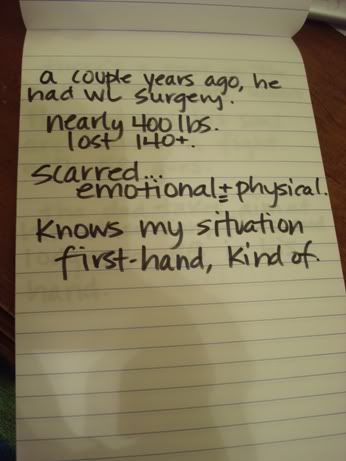 a couple years ago, he
had WL surgery.
nearly 400 lbs.
lost 140+.
scarred...
emotional ± physical.
Knows my situation
first-hand, kind of.